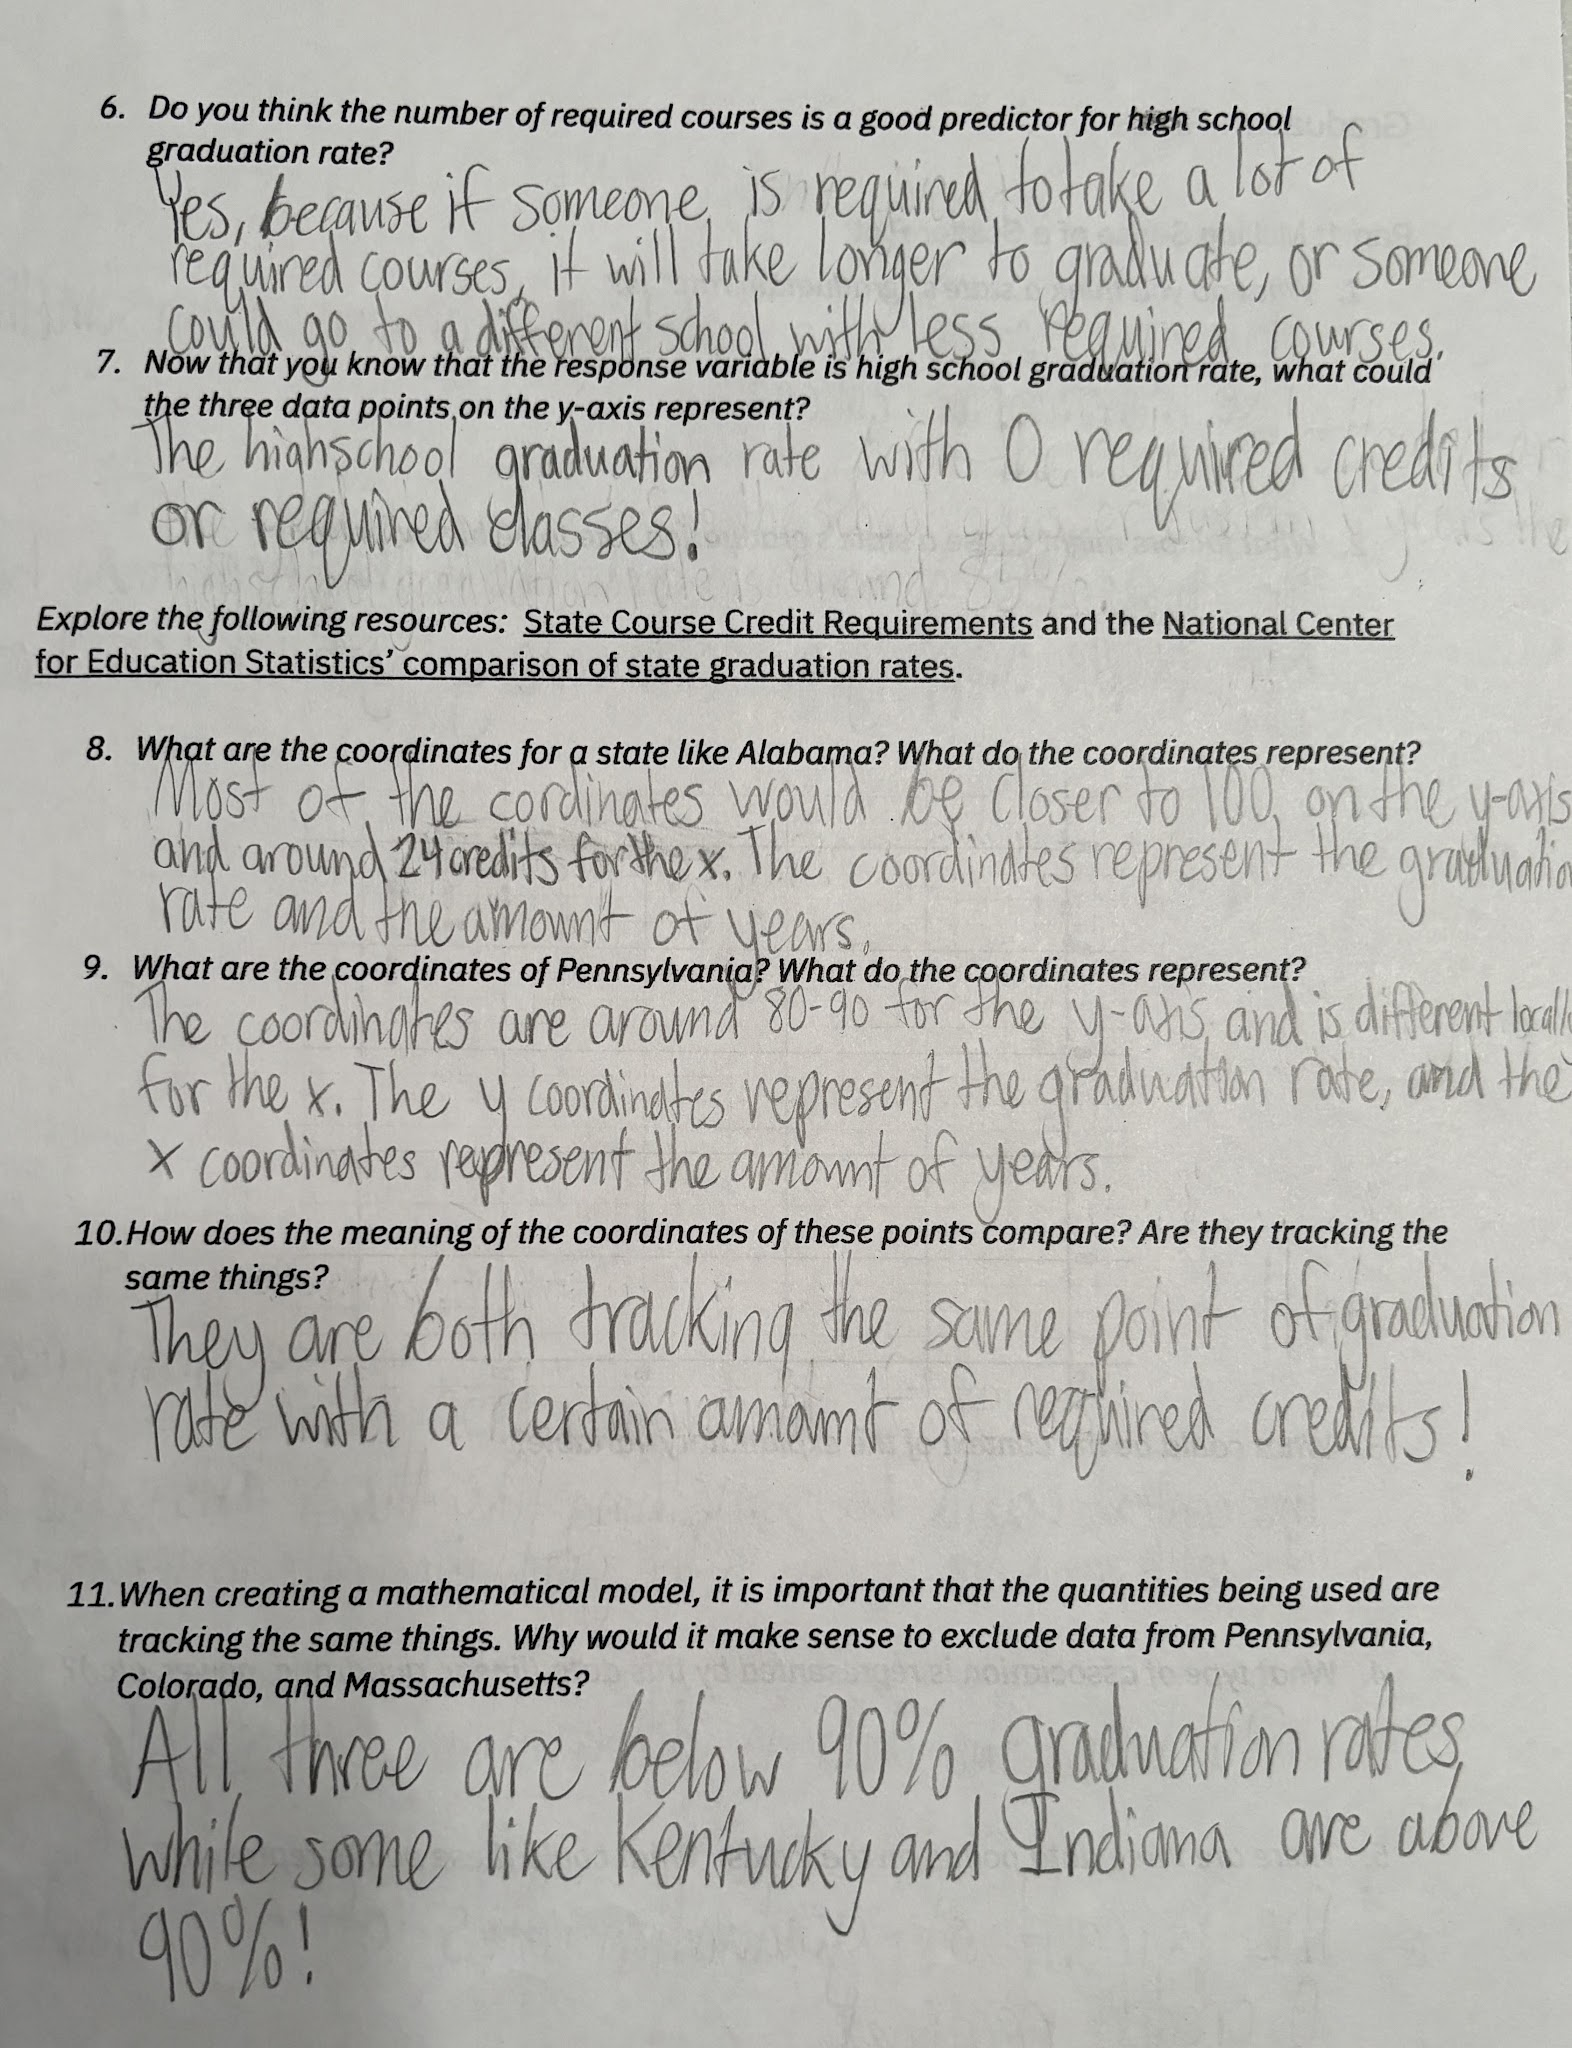 6. Do you think the number of required courses is a good predictor for high school
graduation rate?
Yes, because if someone is required to take a lot of
required courses, it will take longer to graduate, or someone
could go to a different school with less required courses.
7. Now that you know that the response variable is high school graduation rate, what could
the three data points on the y-axis represent?
The highschool graduation rate with 0 required credits
or required classes!
Explore the following resources: State Course Credit Requirements and the National Center
for Education Statistics' comparison of state graduation rates.
8. What are the coordinates for a state like Alabama? What do the coordinates represent?
Most of the cordinates would be closer to 100 on the y-axis
and around 24 credits for the x. The coordinates represent the graduatio
rate and the amount of years.
9. What are the coordinates of Pennsylvania? What do the coordinates represent?
The coordinates are around 80-90 for the y-axis, and is different locally
for the x. The y coordinates represent the graduation rate, and the
x coordinates represent the amount of years.
10. How does the meaning of the coordinates of these points compare? Are they tracking the
same things?
They are both tracking the same point of graduation
rate with a certain amount of required credits!
11. When creating a mathematical model, it is important that the quantities being used are
tracking the same things. Why would it make sense to exclude data from Pennsylvania,
Colorado, and Massachusetts?
All three are below 90% graduation rates,
while some like Kentucky and Indiana are above
90%!